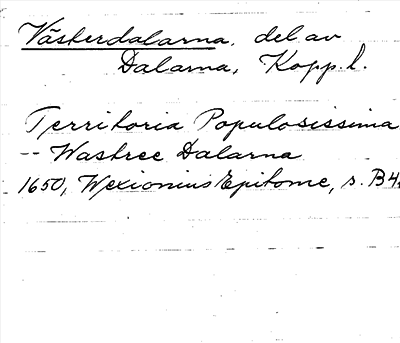 Västerdalarna, del av
Dalarna, Kopp. l.
Territoria Populosissima
-- Wastree Dalarna
1650, Wexionius Epitome, s. B4.